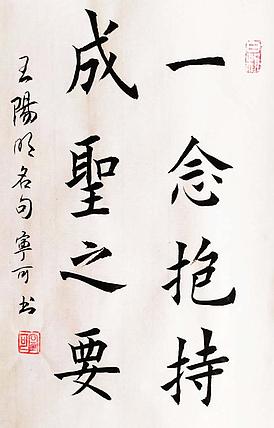 一念抱持
成聖之要
王陽明名句寧可书